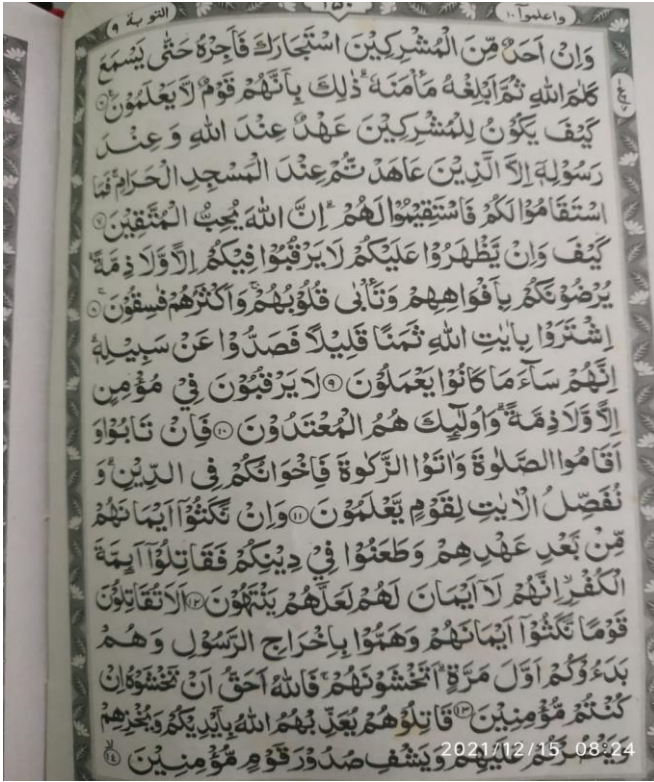 التوبة ٩
١٥٠
واعلموآ ١٠
وَاِنْ اَحَدٌ مِّنَ الْمُشْرِكِيْنَ اسْتَجَارَكَ فَاَجِرْهُ حَتّٰى يَسْمَعَ
كَلٰمَ اللّٰهِ ثُمَّ اَبْلِغْهُ مَاْمَنَهٗ ؕ ذٰلِكَ بِاَنَّهُمْ قَوْمٌ لَّا يَعْلَمُوْنَ ۶
كَيْفَ يَكُوْنُ لِلْمُشْرِكِيْنَ عَهْدٌ عِنْدَ اللّٰهِ وَ عِنْدَ
رَسُوْلِهٖۤ اِلَّا الَّذِيْنَ عَاهَدْتُّمْ عِنْدَ الْمَسْجِدِ الْحَرَامِ ۚ فَمَا
اسْتَقَامُوْا لَكُمْ فَاسْتَقِيْمُوْا لَهُمْ ؕ اِنَّ اللّٰهَ يُحِبُّ الْمُتَّقِيْنَ ۷
كَيْفَ وَاِنْ يَّظْهَرُوْا عَلَيْكُمْ لَا يَرْقُبُوْا فِيْكُمْ اِلًّا وَّلَا ذِمَّةً ؕ
يُرْضُوْنَكُمْ بِاَفْوَاهِهِمْ وَتَاْبٰى قُلُوْبُهُمْ ۚ وَاَكْثَرُهُمْ فٰسِقُوْنَ ۚ ۸
اِشْتَرَوْا بِاٰيٰتِ اللّٰهِ ثَمَنًا قَلِيْلًا فَصَدُّوْا عَنْ سَبِيْلِهٖ ؕ
اِنَّهُمْ سَآءَ مَا كَانُوْا يَعْمَلُوْنَ ۹ لَا يَرْقُبُوْنَ فِيْ مُؤْمِنٍ
اِلًّا وَّلَا ذِمَّةً ؕ وَاُولٰٓئِكَ هُمُ الْمُعْتَدُوْنَ ۱۰ فَاِنْ تَابُوْا وَ
اَقَامُوا الصَّلٰوةَ وَاٰتَوُا الزَّكٰوةَ فَاِخْوَانُكُمْ فِى الدِّيْنِ ؕ وَ
نُفَصِّلُ الْاٰيٰتِ لِقَوْمٍ يَّعْلَمُوْنَ ۱۱ وَاِنْ نَّكَثُوْۤا اَيْمَانَهُمْ
مِّنْۢ بَعْدِ عَهْدِهِمْ وَطَعَنُوْا فِيْ دِيْنِكُمْ فَقَاتِلُوْۤا اَئِمَّةَ
الْكُفْرِ ۙ اِنَّهُمْ لَاۤ اَيْمَانَ لَهُمْ لَعَلَّهُمْ يَنْتَهُوْنَ ۱۲ اَلَا تُقَاتِلُوْنَ
قَوْمًا نَّكَثُوْۤا اَيْمَانَهُمْ وَهَمُّوْا بِاِخْرَاجِ الرَّسُوْلِ وَهُمْ
بَدَءُوْكُمْ اَوَّلَ مَرَّةٍ ؕ اَتَخْشَوْنَهُمْ ۚ فَاللّٰهُ اَحَقُّ اَنْ تَخْشَوْهُ اِنْ
كُنْتُمْ مُّؤْمِنِيْنَ ۱۳ قَاتِلُوْهُمْ يُعَذِّبْهُمُ اللّٰهُ بِاَيْدِيْكُمْ وَيُخْزِهِمْ
وَيَنْصُرْكُمْ عَلَيْهِمْ وَيَشْفِ صُدُوْرَ قَوْمٍ مُّؤْمِنِيْنَ ۙ ۱۴
2021/12/15 08:24